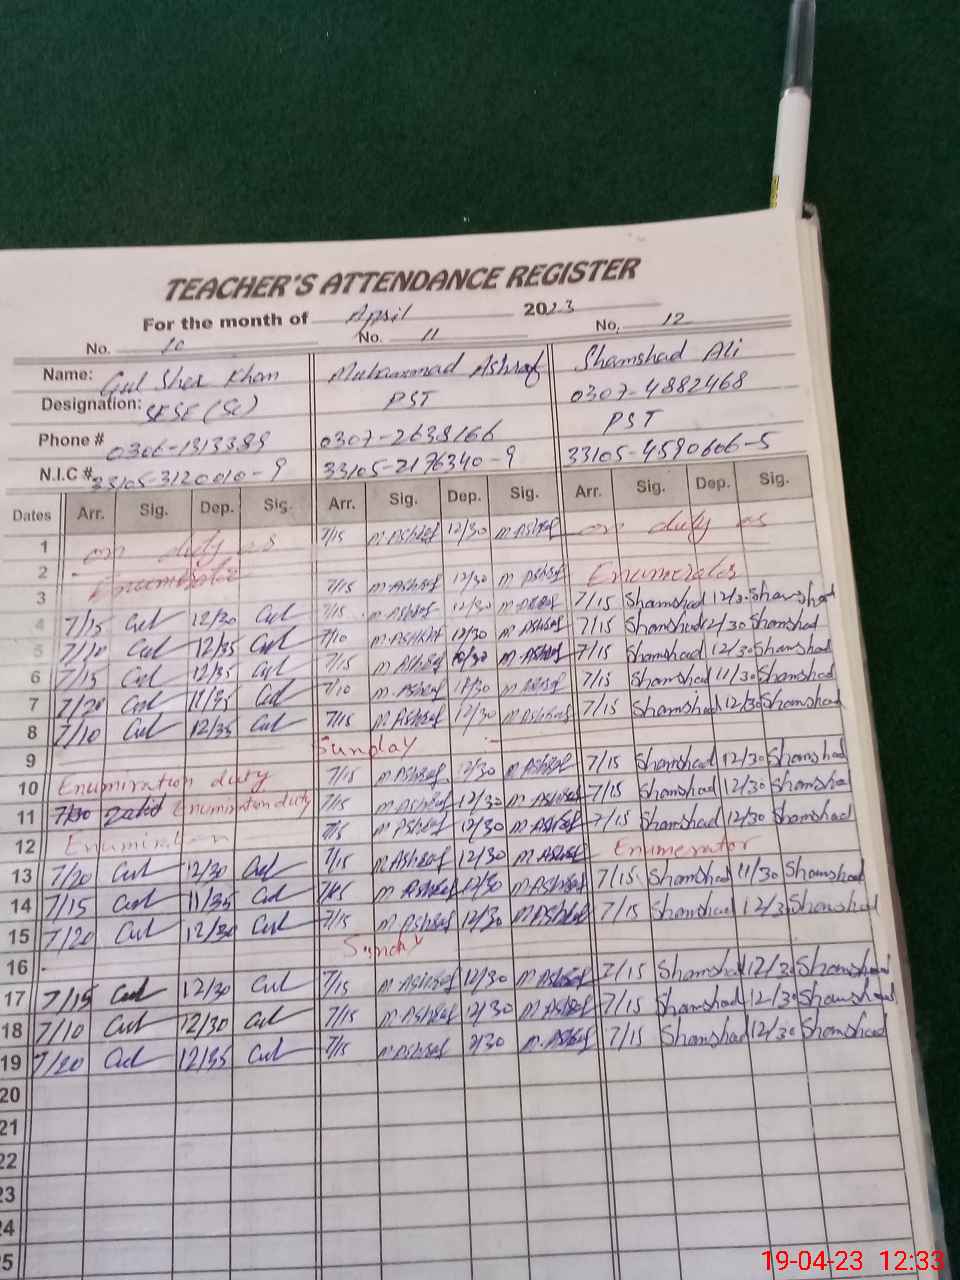 TEACHER'S ATTENDANCE REGISTER
For the month of April 2023
No. 10 No. 11 No. 12
Name: Gul Sher Khan Muhammad Ashraf Shamshad Ali
Designation: SESE (Sc) PST 0307-4882468
Phone # 0306-1313389 0307-2638166 PST
N.I.C # 33105-3120010-9 33105-2176340-9 33105-4590606-5
Dates Arr. Sig. Dep. Sig. Arr. Sig. Dep. Sig. Arr. Sig. Dep. Sig.
1 on duty as 7/15 M. Ashraf 12/30 M. Ashraf on duty as
2 Enumerator Enumerator
3 7/15 M. Ashraf 12/30 M. Ashraf 7/15 Shamshad 12/30 Shamshad
4 7/15 Gul 12/30 Gul 7/15 M. Ashraf 12/30 M. Ashraf 7/15 Shamshad 12/30 Shamshad
5 7/10 Gul 12/35 Gul 7/10 M. Ashraf 12/30 M. Ashraf 7/15 Shamshad 12/30 Shamshad
6 7/15 Gul 12/35 Gul 7/15 M. Ashraf M. Ashraf 7/15 Shamshad 11/30 Shamshad
7 7/20 Gul Gul 7/10 M. Ashraf M. Ashraf 7/15 Shamshad 12/30 Shamshad
8 7/10 Gul 12/35 Gul 7/15 M. Ashraf 12/30 M. Ashraf
9 Sunday
10 Enumiration duty 7/15 M. Ashraf 12/30 M. Ashraf 7/15 Shamshad 12/30 Shamshad
11 Enumiration duty 7/15 M. Ashraf 12/30 M. Ashraf 7/15 Shamshad 12/30 Shamshad
12 7/15 M. Ashraf 12/30 M. Ashraf 7/15 Shamshad 12/30 Shamshad
13 7/20 Gul 12/30 Gul 7/15 M. Ashraf 12/30 M. Ashraf Enumerator
14 7/15 Gul 11/35 Gul M. Ashraf 12/30 M. Ashraf 7/15 Shamshad 11/30 Shamshad
15 7/20 Gul 12/30 Gul 7/15 M. Ashraf 12/30 M. Ashraf 7/15 Shamshad 12/30 Shamshad
16 Sunday
17 7/15 Gul 12/30 Gul 7/15 M. Ashraf 12/30 M. Ashraf 7/15 Shamshad 12/30 Shamshad
18 7/10 Gul 12/30 Gul 7/15 M. Ashraf 12/30 M. Ashraf 7/15 Shamshad 12/30 Shamshad
19 7/20 Gul 12/35 Gul 7/15 M. Ashraf 12/30 M. Ashraf 7/15 Shamshad 12/30 Shamshad
20
21
22
23
24
25
19-04-23 12:33